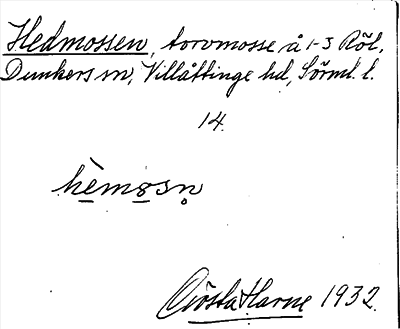 Hedmossen, torvmosse å 1-3 Röl,
Dunkers sn, Villåttinge hd, Sörml. l.
14.
hèmøsn̥
Gösta Harne 1932.